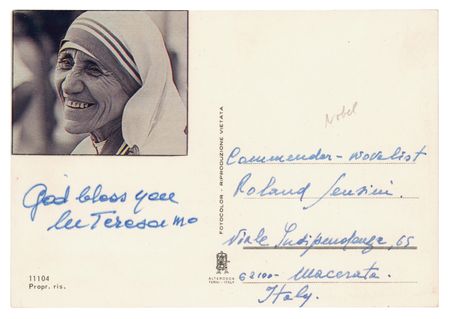 God bless you
lu Teresa mc
11104
Propr. ris.
FOTOCOLOR - RIPRODUZIONE VIETATA
ALTEROCCA
TERNI - ITALY
Nobel
Commendor - novelist
Roland Sensini.
Viale Indipendenza, 65
62100 - Macerata.
Italy.